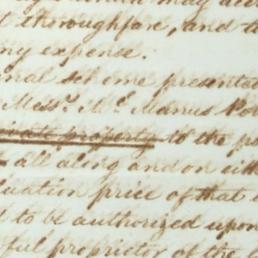 may
t thoroughfare, and t
ny expense.
nal scheme presented
Mess.rs Mc Manus
private property to the p
all along and on eith
luation price of that
d to be authorized upon
ful proprietor of the